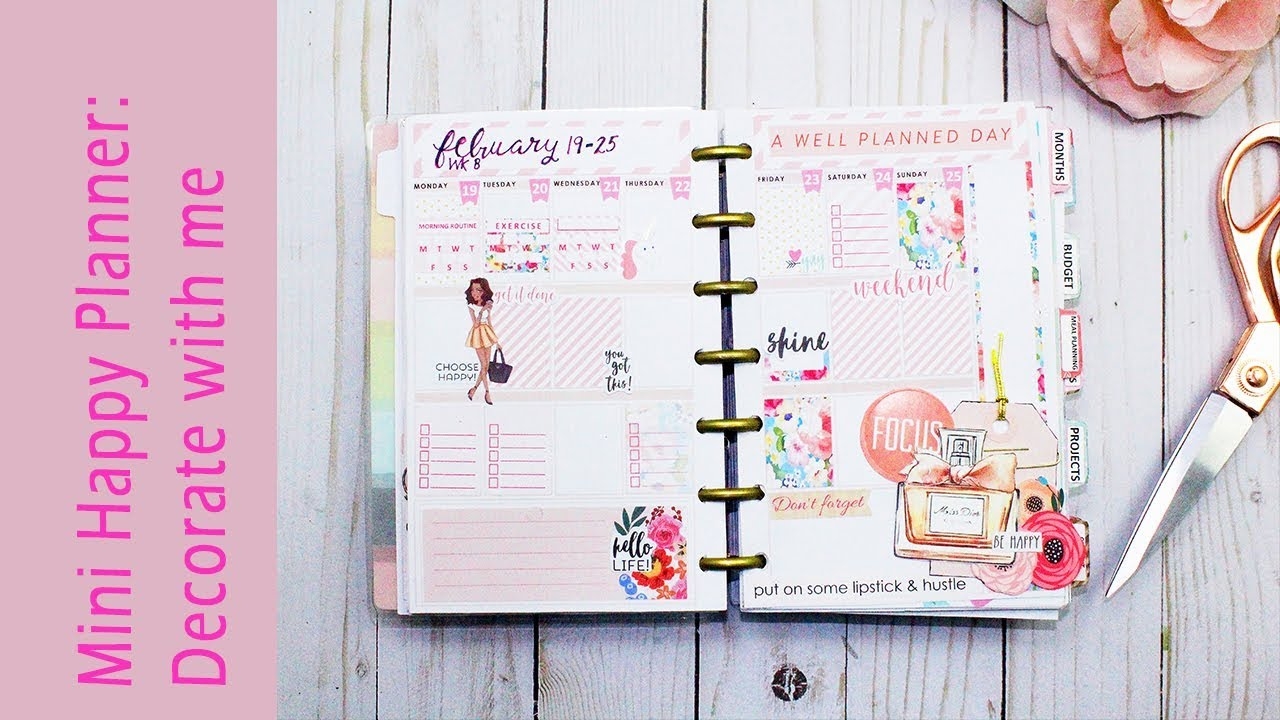 Mini Happy Planner:
Decorate with me
february 19-25
WK 8
MONDAY 19 TUESDAY 20 WEDNESDAY 21 THURSDAY 22
MORNING ROUTINE EXERCISE
M T W T M T W T M T W T
F S S F S S F S S
get it done
CHOOSE
HAPPY!
you
got
this!
hello
LIFE!
A WELL PLANNED DAY
FRIDAY 23 SATURDAY 24 SUNDAY 25
yay
weekend
shine
FOCUS
Don't forget
Miss Dior
BE HAPPY
put on some lipstick & hustle
MONTHS
BUDGET
MEAL PLANNING
PROJECTS